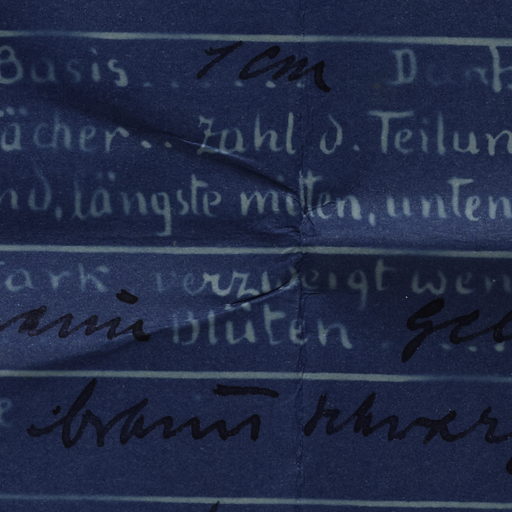 Basis . . . . . . . 1 cm Dark
ächer . . Zahl d. Teilun
nd, längste mitten, unten
tark verzweigt wen
Blüten . . . . . gel
braun schwarz